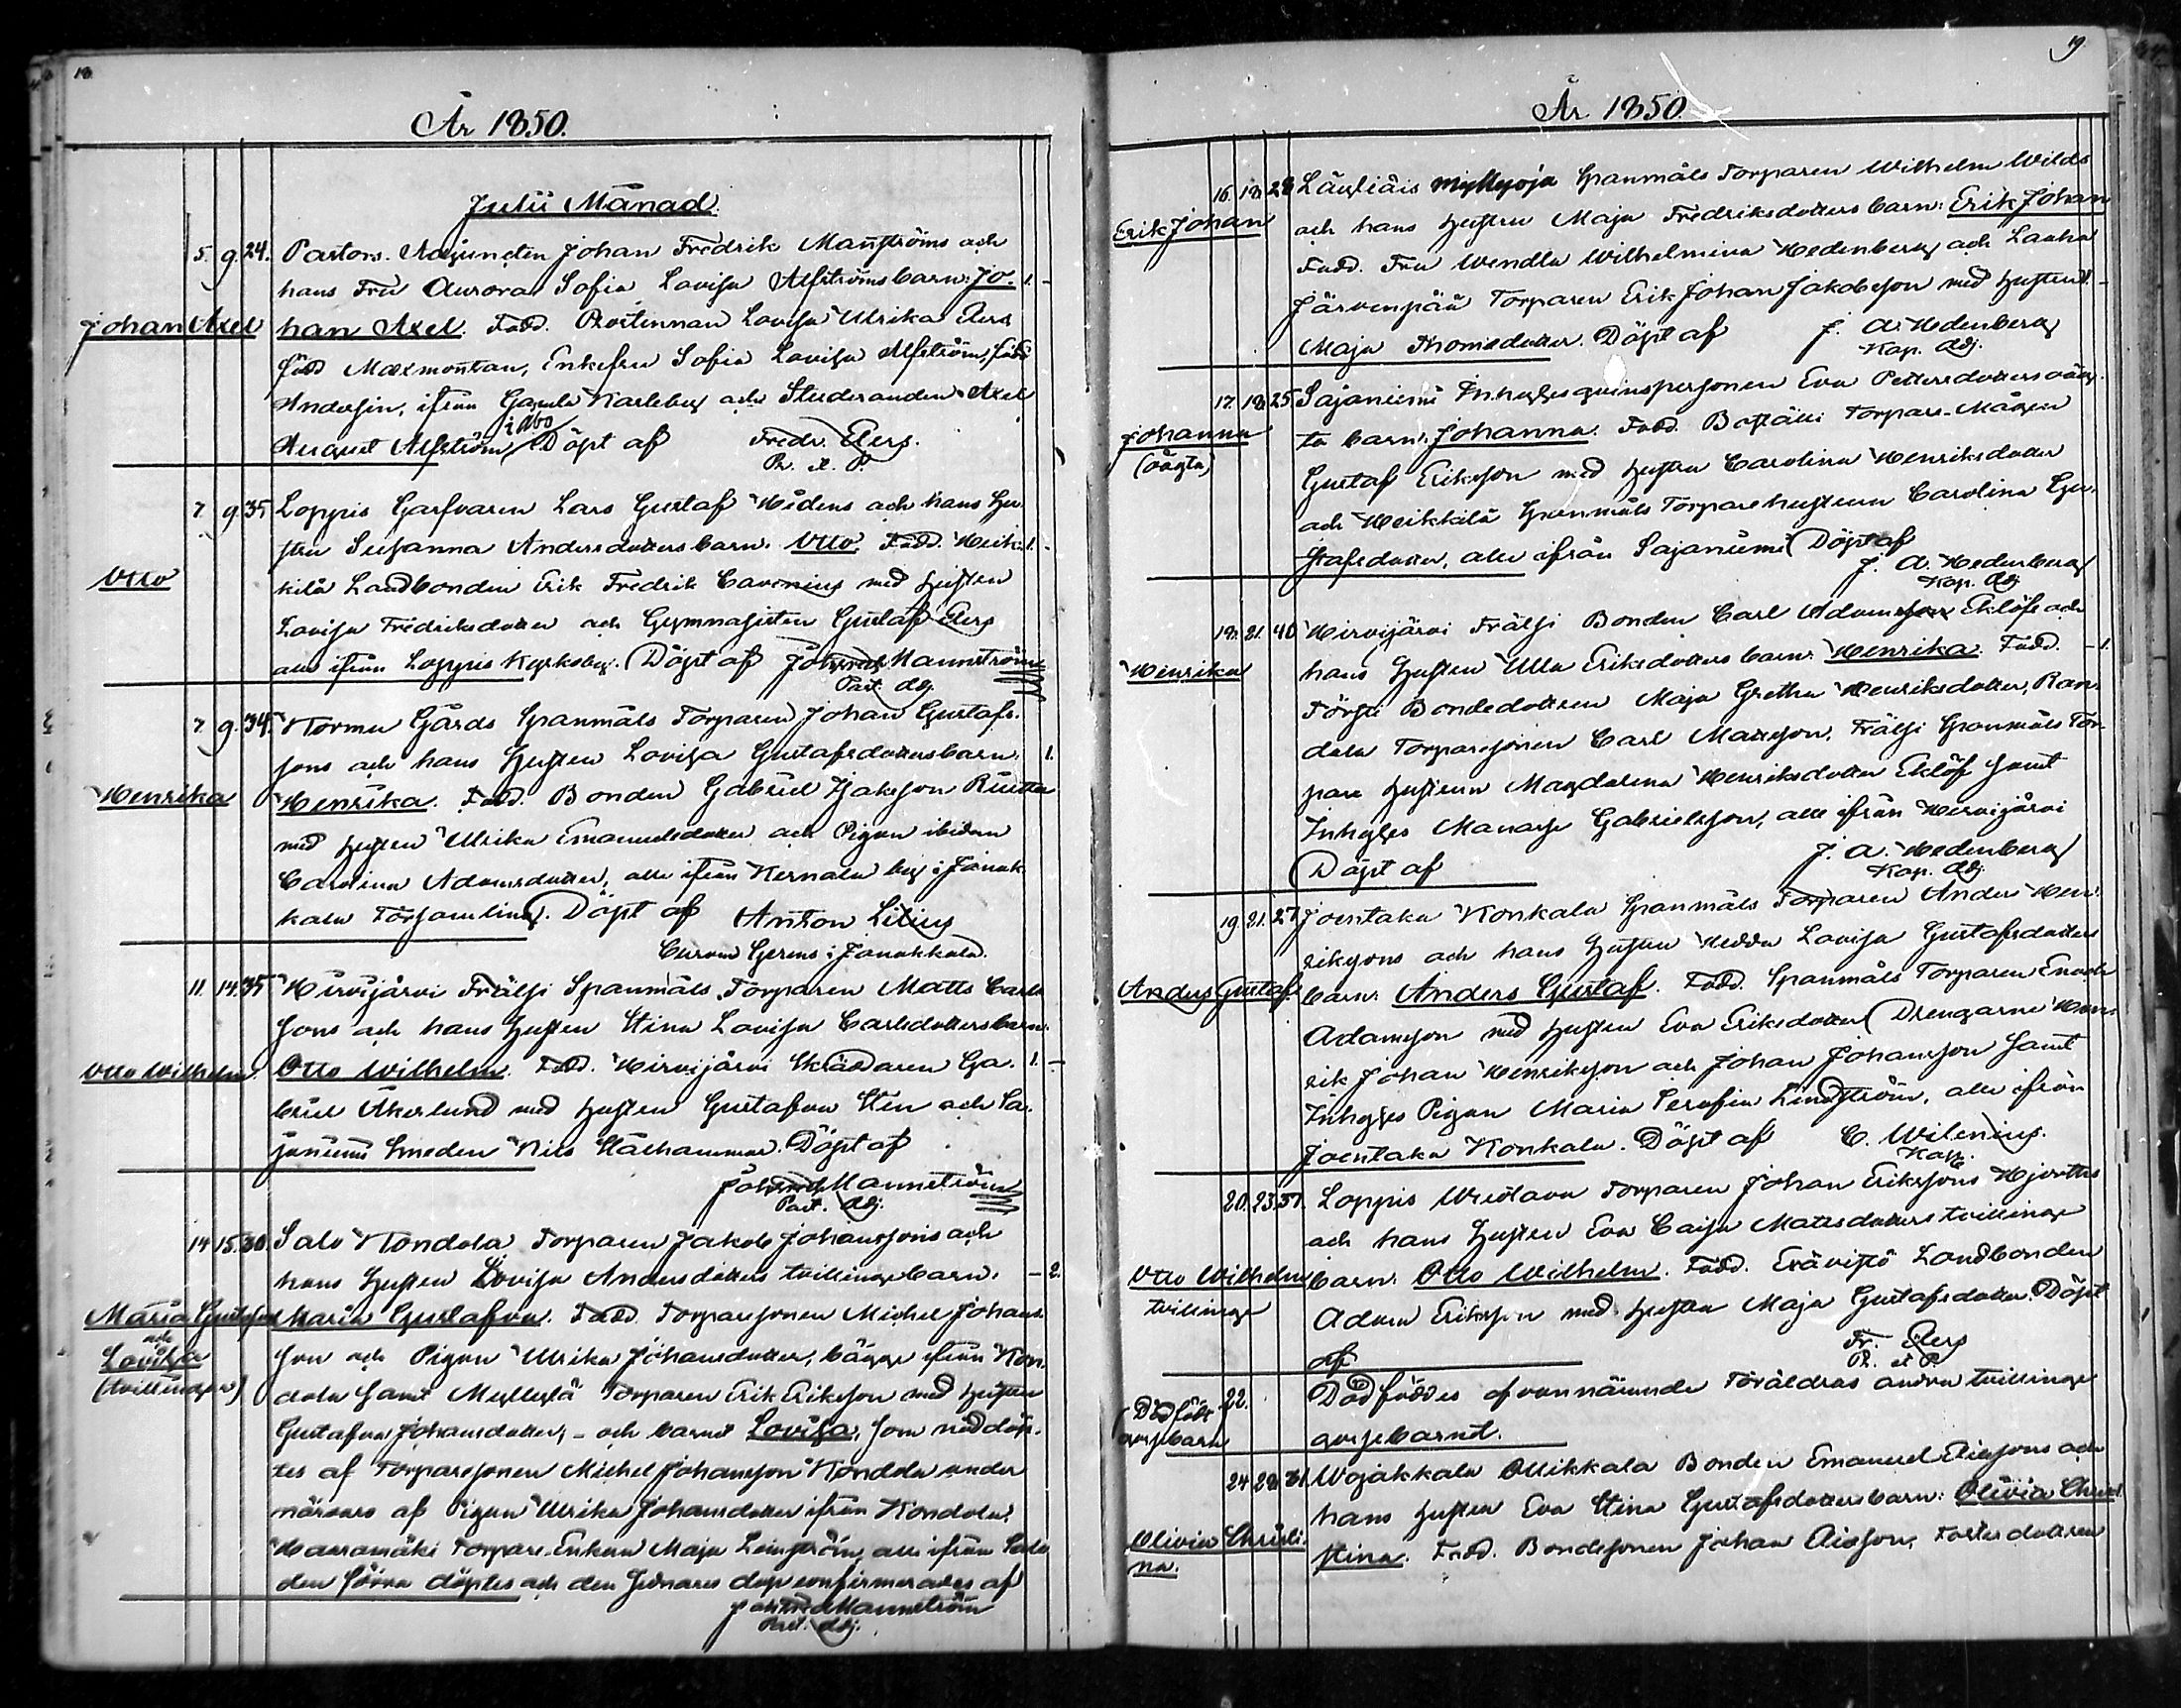 18.
År 1850.
Julii Månad.
5. 9. 24. Pastors Adjuncten Johan Fredrik Manströms och
hans Fru Aurora Sofia Lovisa Alfströms barn: Jo- 1. -
Johan Axel
han Axel. Fadd. Prostinnan Lovisa Ulrika Aers
född Mæxmontan, Enkefru Sofia Lovisa Alfström, född
Andersin, ifrån Gamla Karleby och Studeranden Axel
August Alfström i Åbo Döpt af Fredr. Aers.
Pr. et P.
7. 9. 35. Loppis Garfvaren Lars Gustaf Widens och hans Hu-
stru Susanna Andersdotters barn: Otto. Fadd. Heik- 1. -
Otto
kilä Landbonden Erik Fredrik Cavonius med hustru
Lovisa Fredriksdotter och Gymnasisten Gustaf Aers
alla ifrån Loppis Kyrkoby. Döpt af Joh. Fred. Mannström
Past. Adj.
7. 9. 34. Kormu Gårds Spanmåls Torparen Johan Gustafs-
sons och hans Hustru Lovisa Gustafsdotters barn: 1.
Henrika
Henrika. Fadd. Bonden Gabriel Isaksson
med hustru Ulrika Emanuelsdotter och Pigan ibidem
Carolina Adamsdotter, alla ifrån Kernala by i Janak-
kala Församling. Döpt af Anton Lilius
Curam Gerens i Janakkala.
11. 14. 35. Hirvijärvi Frälsi Spanmåls Torparen Matts Carls-
sons och hans Hustru Stina Lovisa Carlsdotters barn:
Otto Wilhelm.
Otto Wilhelm. Fadd. Hirvijärvi Skräddaren Ga- 1. -
briel Åkerlund med hustru Gustafva Sten och Sa-
janiemi Smeden Nils Stålhammar. Döpt af
Joh. Fred. Mannström
Past. Adj.
14. 15. 30. Salo Kondola Torparen Jakob Johanssons och
hans Hustru Lovisa Andersdotters tvillingebarn: - 2.
Maria Gustafva
och
Lovisa
(tvillingar)
Maria Gustafva. Fadd. Torparesonen Michel Johans-
son och Pigan Ulrika Johansdotter, bägge ifrån Kon-
dola samt Myllylä Torparen Erik Eriksson med hustru
Gustafva Johansdotter, - och barnet Lovisa, som nöddöp-
tes af Torparesonen Michel Johansson Kondola under
närvaro af Pigan Ulrika Johansdotter ifrån Kondola,
Torpare Enkan Maja Leinström, alla ifrån Salo
den förra döptes och den sednares dop confirmerades af
Joh. Fred. Mannström
Past. Adj.
19.
År 1850.
16. 18. 28. Läyliäis Myllyoja Spanmåls Torparen Wilhelm Wilds
Erik Johan
och hans hustru Maja Fredriksdotters barn: Erik Johan
Fadd. Fru Wendla Wilhelmina Hedenberg och
Järvenpää Torparen Erik Johan Jakobsson med hustru 1. -
Maja Thomasdotter. Döpt af J. A. Hedenberg
Kap. Adj.
17. 18. 25. Sajaniemi Inhyses qvinspersonen Eva Pettersdotters oäg-
Johanna
(oägta)
ta barn: Johanna. Fadd. Torpare Mågen
Gustaf Eriksson med hustru Carolina Henriksdotter
och Heikkilä Spanmåls Torparehustrun Carolina Gu-
stafsdotter, alla ifrån Sajaniemi Döpt af
J. A. Hedenberg
Kap. Adj.
18. 21. 40. Hirvijärvi Frälsi Bonden Carl Adamsson Eklöfs och
Henrika
hans Hustru Ulla Eriksdotters barn: Henrika. Fadd. - 1.
Bondedottren Maja Gretha Henriksdotter, Ran-
dala Torparesonen Carl Mattsson, Frälsi Spanmåls Tor-
pare hustrun Magdalena Henriksdotter Eklöf samt
Inhyses Manasse Gabrielsson, alla ifrån Hirvijärvi
Döpt af J. A. Hedenberg
Kap. Adj.
19. 21. 27. Joentaka Konkala Spanmåls Torparen Anders Hen-
rikssons och hans Hustru Hedda Lovisa Gustafsdotters
Anders Gustaf
barn: Anders Gustaf. Fadd. Spanmåls Torparen Enoch
Adamsson med hustru Eva Eriksdotter Drengarne Hen-
rik Johan Henriksson och Johan Johansson samt
Inhyses Pigan Maria Serafia Lindström, alla ifrån
Joentaka Konkala. Döpt af C. Wilenius.
Kapp.
20. 23. 37. Loppis Torparen Johan Erikssons Hjortts
och hans Hustru Eva Caisa Mattsdotters tvillinge
Otto Wilhelm
tvillinge
barn: Otto Wilhelm. Fadd. Erävistö Landbonden
Adam Eriksson med hustru Maja Gustafsdotter. Döpt
af Fr. Aers
Pr. et P.
22.
(Dödfödt
gossebarn
Död föddes ofvannämnde Föräldrars andra tvillinge
gossebarnet.
24. 28. 31. Wojakkala Ollikkala Bonden Emanuel Eliassons och
hans hustru Eva Stina Gustafsdotters barn: Olivia Chri-
Olivia Christi-
na.
stina. Fadd. Bondesonen Johan Fosterdottren